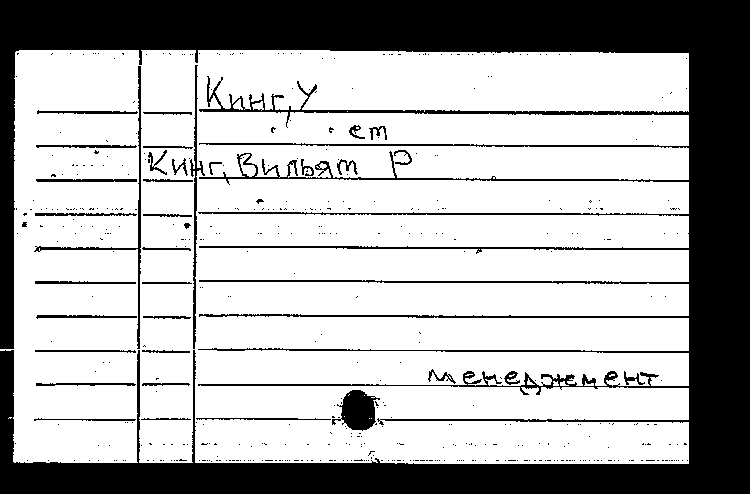 Кинг, У
ет
Кинг, Вильям Р
менеджмент